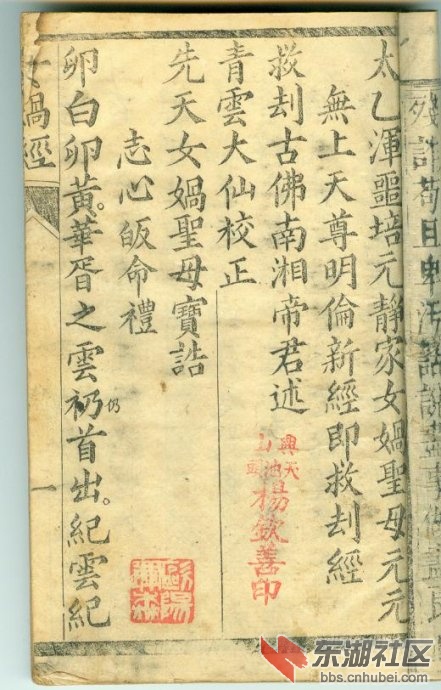 太乙渾噩培元靜家女媧聖母元元
無上天尊明倫新經即救刦經
救刦古佛南湘帝君述
青雲大仙校正
先天女媧聖母寶誥
志心皈命禮
卵白卵黃。華胥之雲礽仍首出。紀雲紀
女媧經
一
興天
山頭
楊欽善印
东湖社区
bbs.cnhubei.com